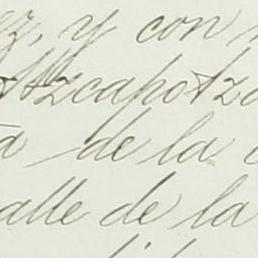 ez, y con
Atzcapotza
a de la
alle de la